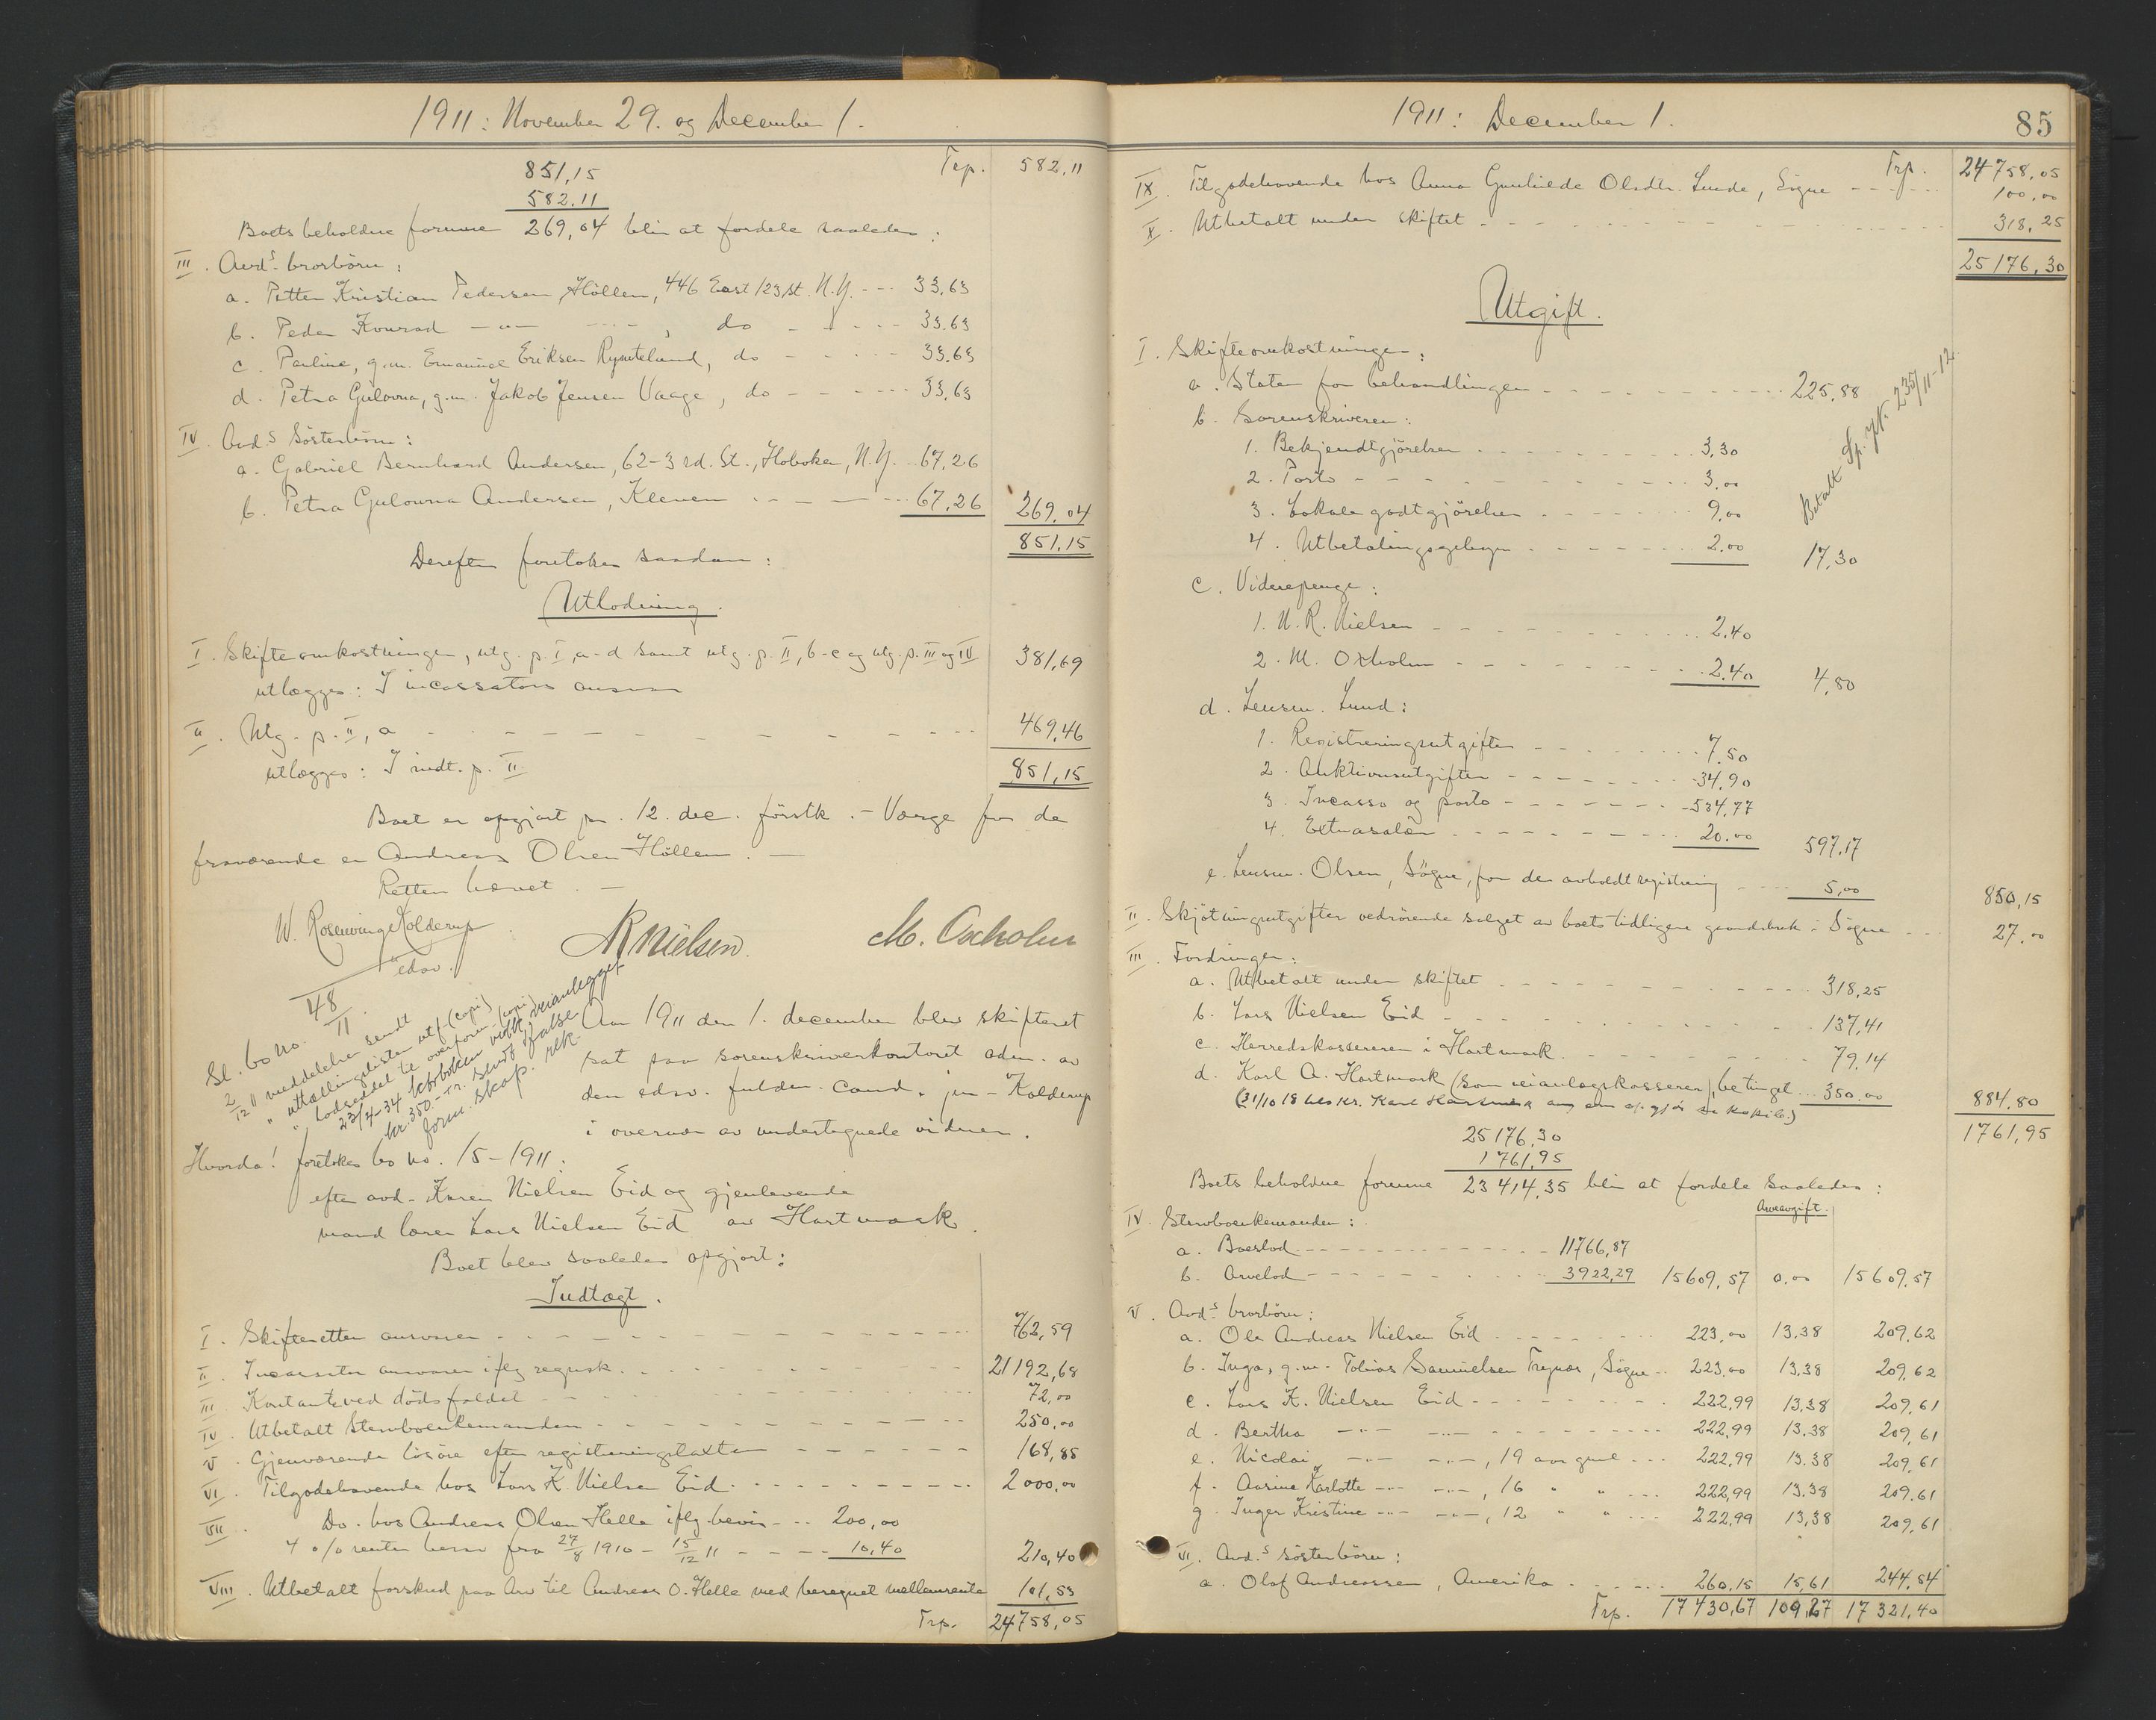 1911: November 29. og December 1.
Trp. 582,11
851,15
582,11
Boets beholdne formue 269,04 blir at fordele saaledes:
III. Avd.s brorbörn:
a. Petter Kristian Pedersen Höllen, 446 East 123 st. N.Y. --- 33,63
b. Peder Konrad -"- -"-, do - - - - - 33.63
c. Pauline, g.m. Emanuel Eriksen Rysstelund, do - - - - - 33,63
d. Petra Gulovna, g.m. Jakob Jensen Vaage, do - - - - - 33,63
IV. Avd.s Sösterbörn:
a. Gabriel Bernhard Andersen, 62-3rd. St., Hoboken, N.Y. .. 67,26
b. Petra Gulovna Andersen, Kleven - - - - - 67,26 269,04
851,15
Derefter foretokes saadan:
Utlodning.
I. Skifteomkostninger, utg. p. I, a-d samt utg. p. II, b-c og utg. p. III og IV 381,69
utlægges: I incassators ansvar
II. Utg. p. II, a - - - - - - - - 469,46
utlægges: I indt. p. II 851,15
Boet er opgjort pr. 12. dec. förstk. - Værge for de
fraværende er Andreas Olsen Höllen. -
Retten hævet. -
W. Rosenvinge Kolderup
edsv.
N R Nielsen.
M. Oxholm
48/11.
Sl. bo no.
2/12 11 meddelelser sendt
" utlodlingslisten utf. (copi)
" lodseddel til overform. (copi)
23/4-34 beboken vedk veianlegget
kr. 350.- + r. sendt Halse
form.skap. rek.
Aar 1911 den 1. december blev skifteret
sat paa sorenskriverkontoret adm. av
den edsv. fuldm. cand. jur. Kolderup
i overvær av undertegnede vidner.
Hvorda! foretokes bo no. 15-1911:
efter avd. Karen Nielsen Eid og gjenlevende
mand lærer Lars Nielsen Eid av Hartmark.
Boet blev saaledes opgjort:
Indtægt.
I. Skifteretten ansvarer - - - - - 762,59
II. Incassator ansvarer iflg regnsk. - - - - - 21192,68
III. Kontant ved dödsfaldet - - - - - 72,00
IV. Utbetalt Stervboenkemanden - - - - - 250,00
V. Gjenværende lösöre efter registreringstaxten - - - - - 168,85
VI. Tilgodehavende hos Lars K. Nielsen Eid - - - - - 2000,00
VII. Do. hos Andreas Olsen Helle iflg. bevis --- 200,00
4 o/o renter herav fra 27/8 1910 - 15/12 11 - - - - 10,40 210,40
VIII. Utbetalt forskud paa Arv til Andreas O. Helle med beregnet mellemrente 101,53
Trp. 24758,05
1911: December 1.
85
Trp. 24758,05
IX. Tilgodehavende hos Anna Gunhilde Olsdtr. Lunde, Sögne - - - 100,00
X. Utbetalt under skiftet - - - - - 318,25
25176,30
Utgift.
I. Skifteomkostninger:
a. Staten for behandlingen - - - - - 225,88
b. Sorenskriveren:
1. Bekjendtgjörelser - - - - - 3,30
2. Porto - - - - - 3,00
3. Lokalegodtgjörelse - - - - - 9,00
4. Utbetalingsgebyr - - - - - 2,00 17,30
Betalt Sp. jk. 235/11-12.
c. Vidnepenge:
1. N. R. Nielsen - - - - - 2,40
2. M. Oxholm - - - - - 2,40 4,80
d. Lensm. Lund:
1. Registreringsutgifter - - - - - 7,50
2. Auktionsutgifter - - - - - 34,90
3. Incasso og porto - - - - - 534,77
4. Extrasalær - - - - - 20.00 597,17
e. Lensm. Olsen, Sögne, for den avholdt registrering - - - 5,00 850,15
II. Skjötningsutgifter vedrörende salget av boets tidligere grundsbruk i Sögne - - - 27,00
III. Fordringer:
a. Utbetalt under skiftet - - - - - 318,25
b. Lars Nielsen Eid - - - - - 137,41
c. Herredskassereren i Hartmark - - - - - 79,14
d. Karl A. Hartmark (som veianlægskasserer), betinget ... 350.00 884,80
(31/10 18 Karl Hartmark)
1761,95
25176,30
1761,95
Boets beholdne formue 23414,35 blir at fordele saaledes:
Arveavgift.
IV. Stervboenkemanden:
a. Boeslod - - - - - 11766,87
b. Arvelod - - - - - 3922,29 15609,57 0.00 15609,57
V. Avd.s brorbörn:
a. Ole Andreas Nielsen Eid - - - - - 223,00 13,38 209,62
b. Inga, g.m. Tobias Samuelsen Trysnes, Sögne .. 223,00 13,38 209,62
c. Lars K. Nielsen Eid - - - - - 222,99 13,38 209,61
d. Bertha -"- -"- - - - - - 222,99 13,38 209,61
e. Nicolai -"- -"-, 19 aar gml ... 222,99 13.38 209,61
f. Aasine Karlotte -"- -"-, 16 " " ... 222,99 13,38 209,61
g. Inger Kristine -"- -"-, 12 " " ... 222,99 13,38 209,61
VI. Avd.s sösterbörn:
a. Olaf Andreassen, Amerika - - - - - 260,15 15,61 244,54
Trp. 17430,67 109,27 17321,40